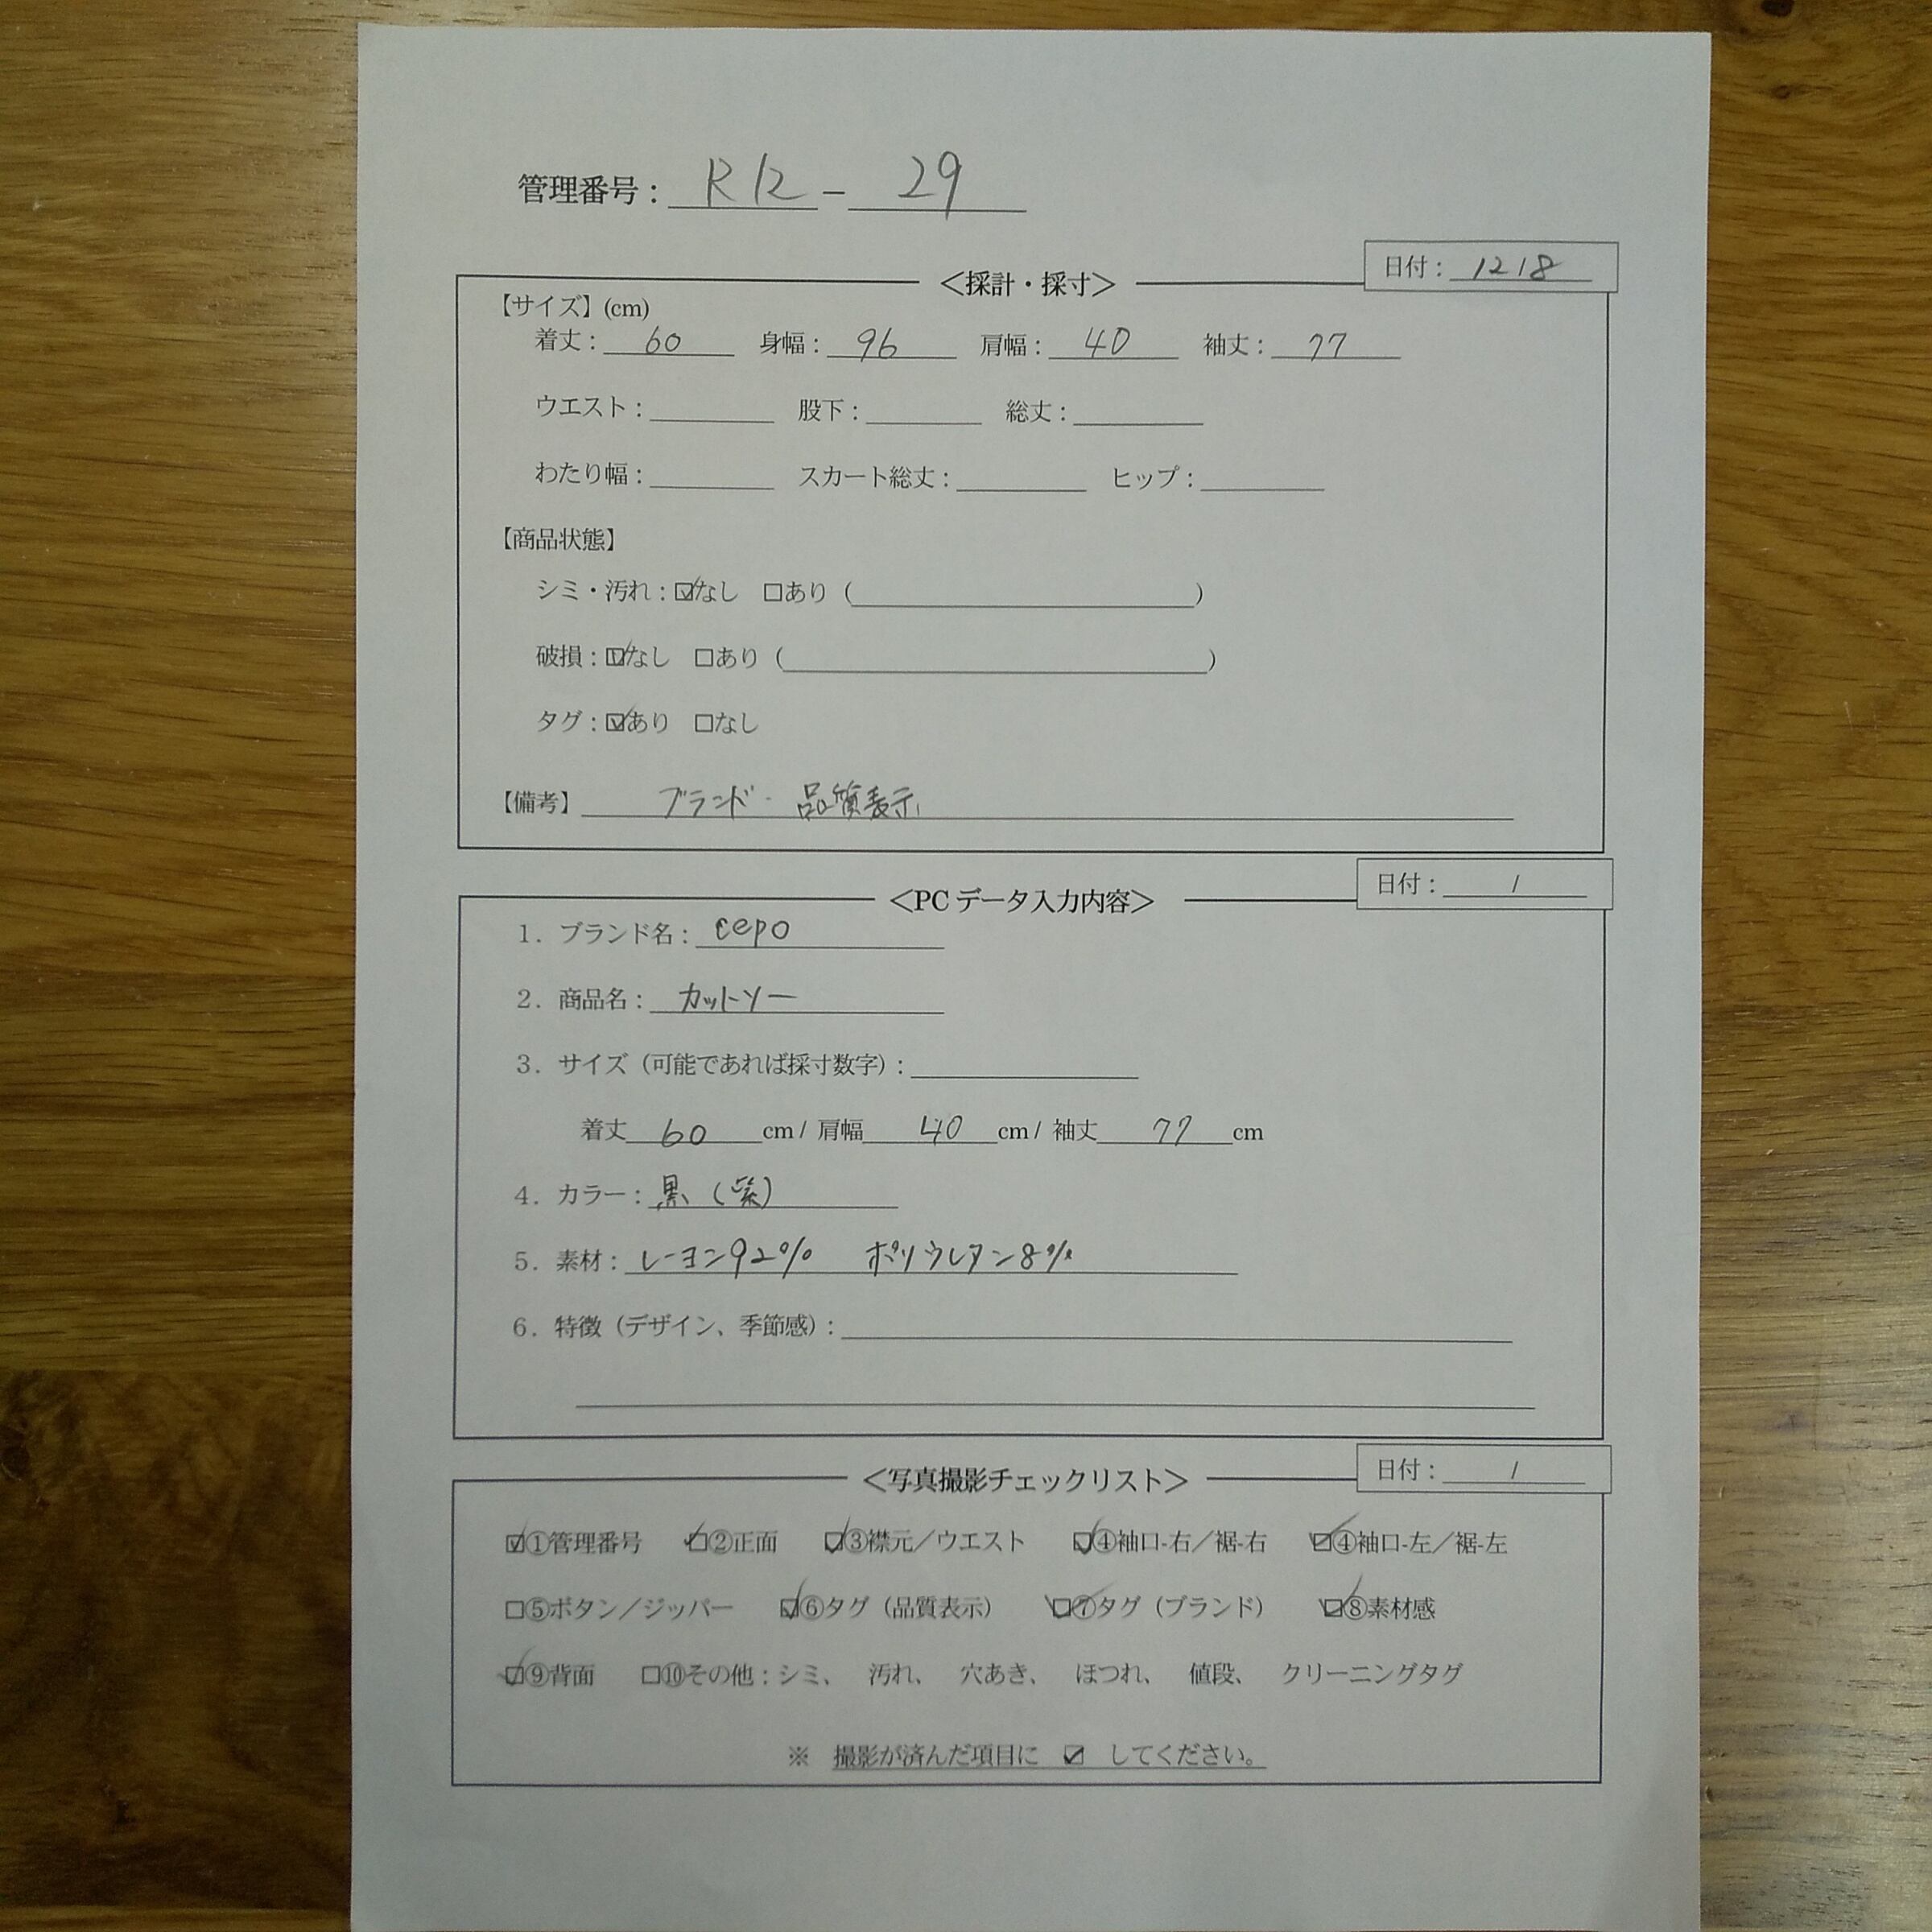 管理番号： R12 － 29
＜採計・採寸＞ 日付： 1218
【サイズ】(cm)
着丈： 60 身幅： 96 肩幅： 40 袖丈： 77
ウエスト： 股下： 総丈：
わたり幅： スカート総丈： ヒップ：
【商品状態】
シミ・汚れ：☑なし □あり（ ）
破損：☑なし □あり（ ）
タグ：☑あり □なし
【備考】 ブランド・品質表示
＜PCデータ入力内容＞ 日付： /
1．ブランド名： cepo
2．商品名： カットソー
3．サイズ（可能であれば採寸数字）：
着丈 60 cm / 肩幅 40 cm / 袖丈 77 cm
4．カラー： 黒（紫）
5．素材： レーヨン92% ポリウレタン8%
6．特徴（デザイン、季節感）：
＜写真撮影チェックリスト＞ 日付： /
☑①管理番号 ☑②正面 ☑③襟元／ウエスト ☑④袖口-右／裾-右 ☑④袖口-左／裾-左
□⑤ボタン／ジッパー ☑⑥タグ（品質表示） ☑⑦タグ（ブランド） ☑⑧素材感
☑⑨背面 □⑩その他：シミ、 汚れ、 穴あき、 ほつれ、 値段、 クリーニングタグ
※ 撮影が済んだ項目に ☑ してください。